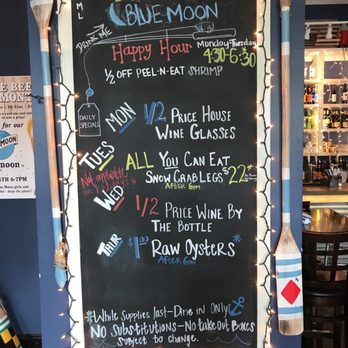 BLUE MOON
DRINK ME
Happy Hour Monday-Thursday
4:30-6:30
1/2 OFF PEEL-N-EAT SHRIMP
DAILY
SPECIALS
MON 1/2 PRICE HOUSE
WINE GLASSES
TUES ALL YOU CAN EAT
SNOW CRAB LEGS $22
AFTER 6PM
Not applicable
WED 1/2 PRICE WINE BY
THE BOTTLE
THUR $1 RAW OYSTERS*
AFTER 6PM
*While Supplies last-Dine in Only!
NO SUBSTITUTIONS-NO TAKE OUT BOXES
SUBJECT TO CHANGE.